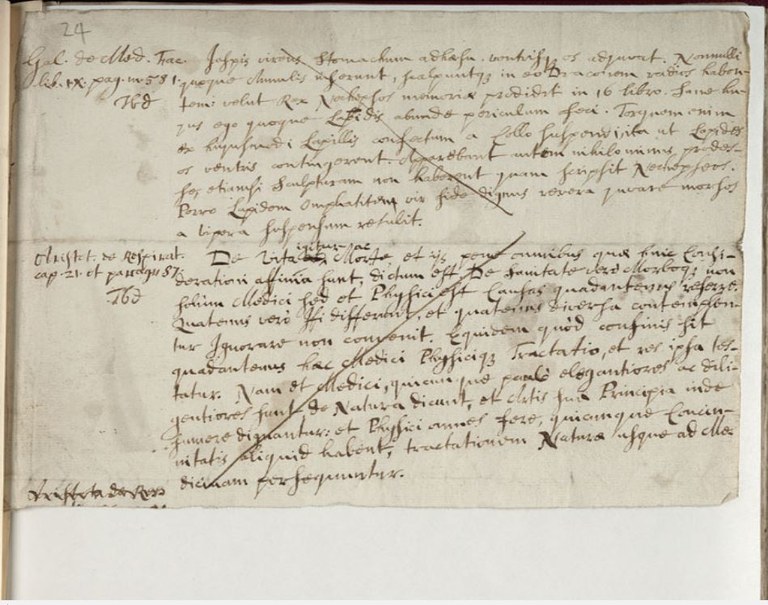 24
Gal. de Med. Fac.
lib. IX. pag. m. 581.
Tbd
Jaspis virens Stomachum adhaesu. ventrisq; os adjuvat. Nonnulli
quoque Annulis inserunt, scalpuntq; in eo Draconem radios haben-
tem: velut Rex Nechepsos memoriae prodidit in 16 libro. Sane hu-
jus ego quoque Lapidis abunde periculum feci. Torquem enim
ex hujusmodi Lapillis confectum a Collo suspendi ita ut Lapides
os ventris contingerent. Apparebant autem nihilominus prodes-
se, etiamsi Sculpturam non haberent quam scripsit Nechepsos.
Porro Lapidem Omphatitem vir fide dignus revera juvare morsos
a vipera suspensum retulit.
Aristot. de Respirat.
cap. 21. et par
Tbd
De Vita igitur ac Morte, et ijs pene omnibus quae huic Consi-
derationi affinia sunt, dictum est. De Sanitate vero Morboq; non
solum Medici sed et Physici est Causas quadantenus referre.
Quatenus vero Isti differunt, et quatenus diversa contemplen-
tur Ignorare non convenit. Equidem quòd confinis sit
quadantenus haec Medici Physiciq; Tractatio, et res ipsa tes-
tatur. Nam et Medici, quicunque paulò elegantiores ac dili-
gentiores sunt de Natura dicunt, et Artis suae Principia inde
sumere dignantur: et Physici omnes fere, quicunque Concin-
nitatis aliquid habent, tractationem Naturae usque ad Me-
dicinam persequuntur.